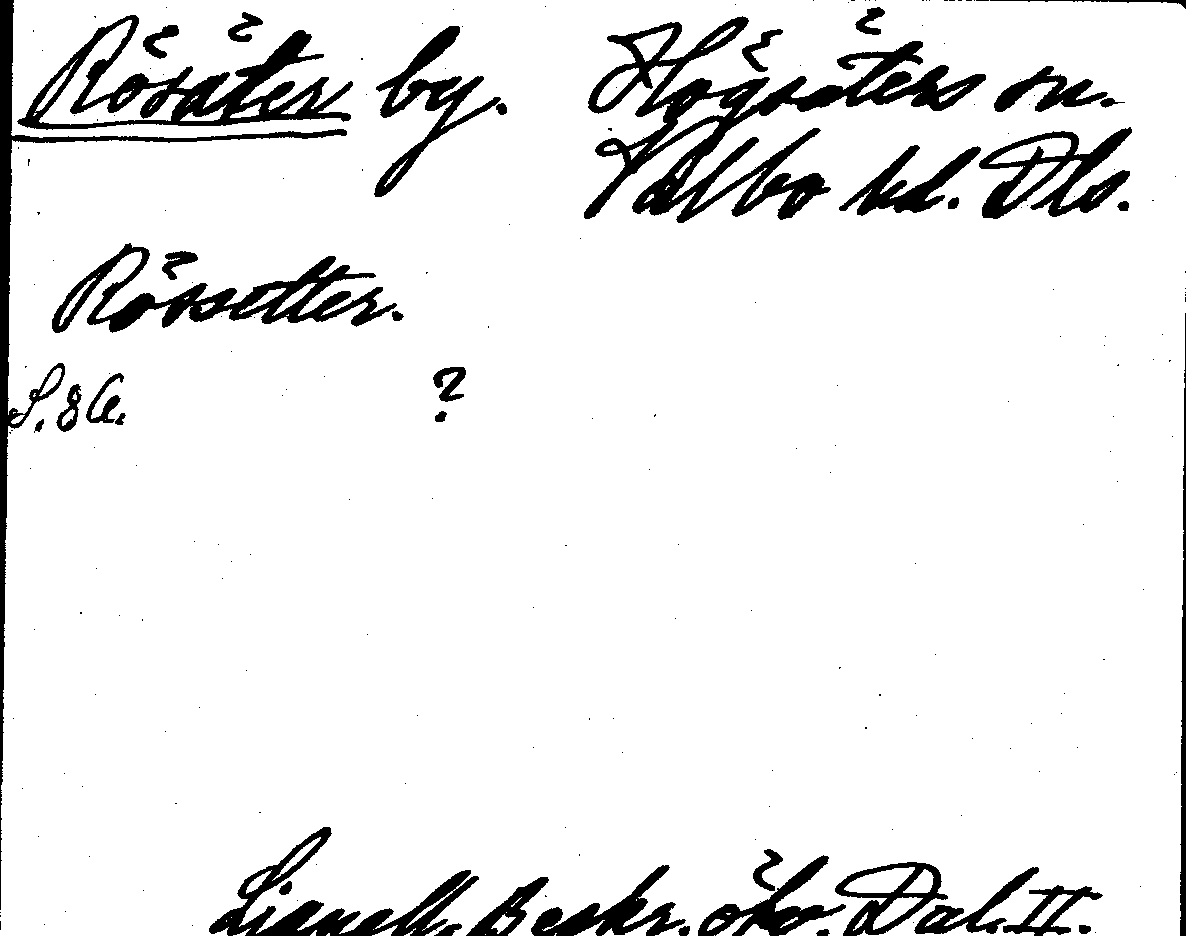 Rösäter by. Högsäters sn.
Valbo hd. Dls.
Rössetter.
S. 86. ?
Lignell, Beskr. öfv. Dal. II.